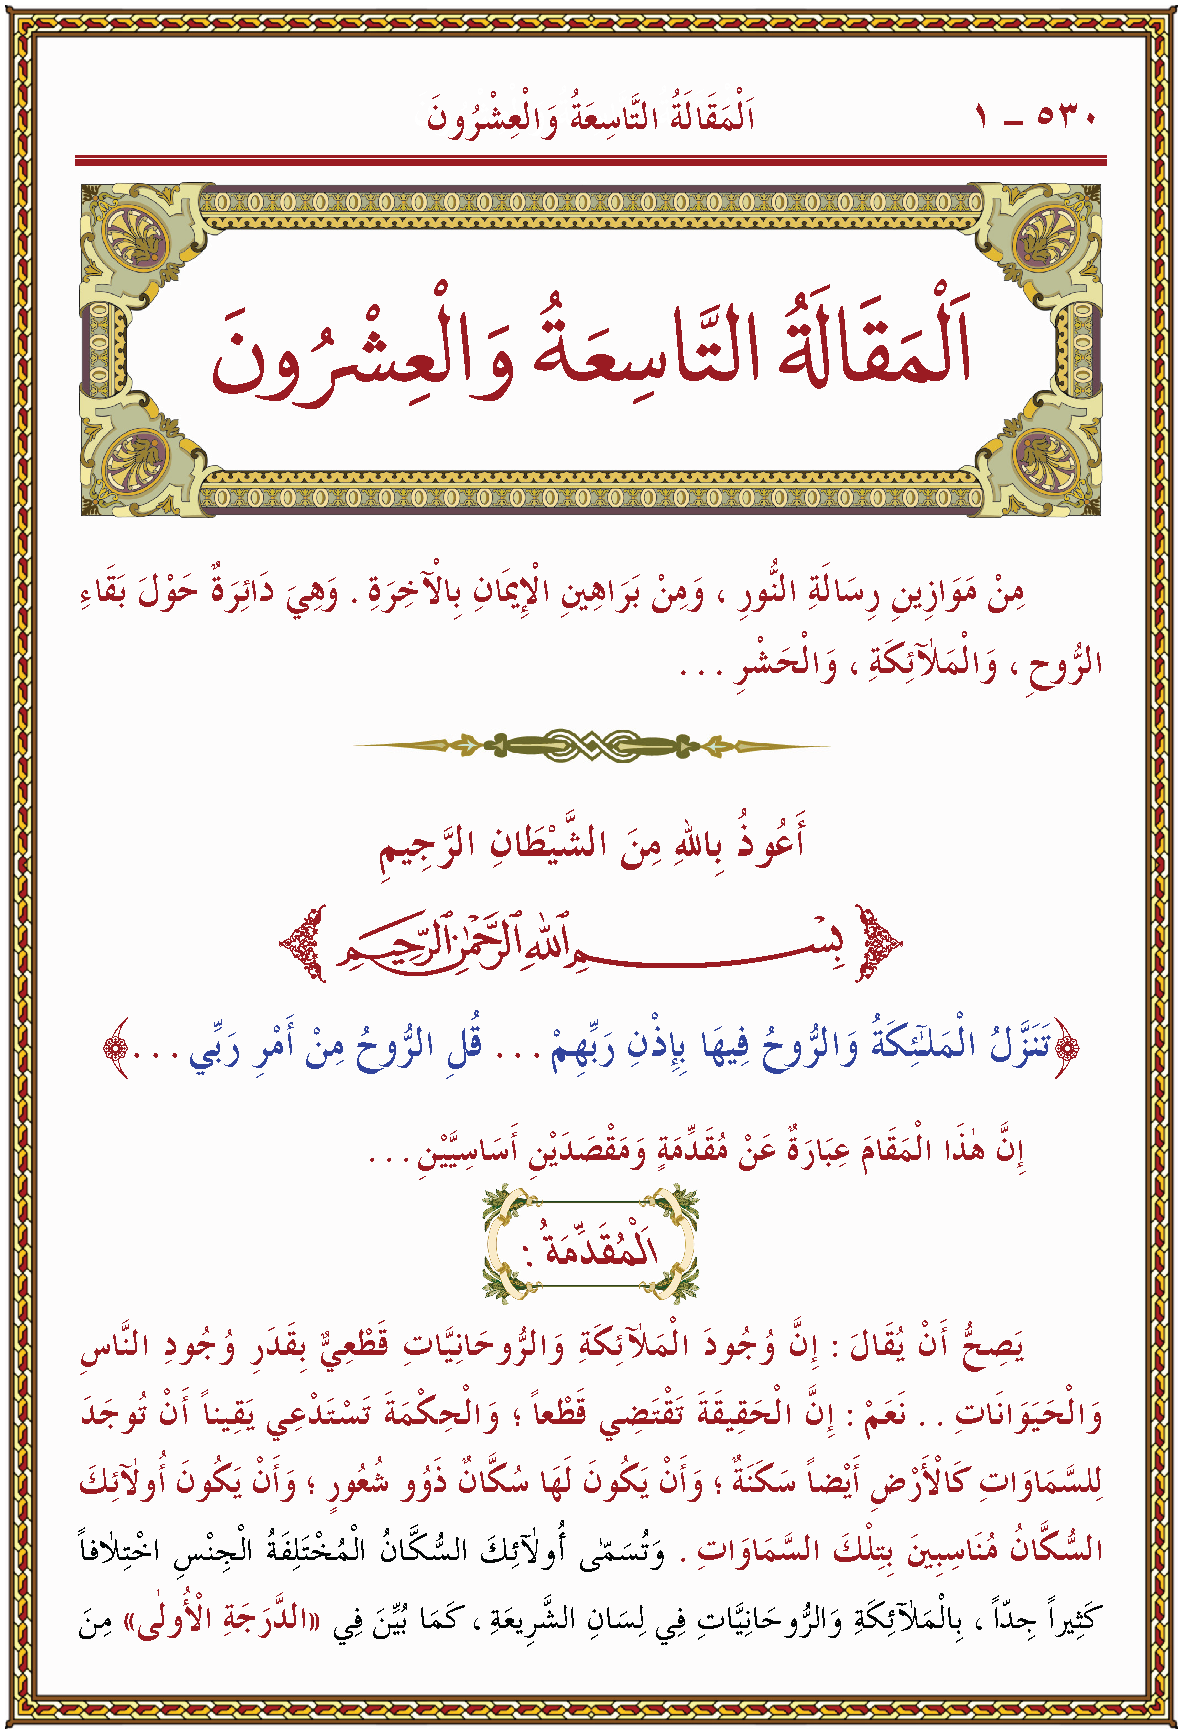 ٥٣٠ – ١
اَلْمَقَالَةُ التَّاسِعَةُ وَالْعِشْرُونَ
اَلْمَقَالَةُ التَّاسِعَةُ وَالْعِشْرُونَ
مِنْ مَوَازِينِ رِسَالَةِ النُّورِ ، وَمِنْ بَرَاهِينِ الْإِيمَانِ بِالْآخِرَةِ . وَهِيَ دَائِرَةٌ حَوْلَ بَقَاءِ
الرُّوحِ ، وَالْمَلَآئِكَةِ ، وَالْحَشْرِ . . .
أَعُوذُ بِاللهِ مِنَ الشَّيْطَانِ الرَّجِيمِ
بِسْمِ ٱللهِ ٱلرَّحْمٰنِ ٱلرَّحِيمِ
﴿تَنَزَّلُ الْمَلٰٓئِكَةُ وَالرُّوحُ فِيهَا بِإِذْنِ رَبِّهِمْ . . . قُلِ الرُّوحُ مِنْ أَمْرِ رَبِّي . . .﴾
إِنَّ هٰذَا الْمَقَامَ عِبَارَةٌ عَنْ مُقَدِّمَةٍ وَمَقْصَدَيْنِ أَسَاسِيَّيْنِ . . .
اَلْمُقَدِّمَةُ :
يَصِحُّ أَنْ يُقَالَ : إِنَّ وُجُودَ الْمَلَآئِكَةِ وَالرُّوحَانِيَّاتِ قَطْعِيٌّ بِقَدَرِ وُجُودِ النَّاسِ
وَالْحَيَوَانَاتِ . . نَعَمْ : إِنَّ الْحَقِيقَةَ تَقْتَضِي قَطْعاً ؛ وَالْحِكْمَةَ تَسْتَدْعِي يَقِيناً أَنْ تُوجَدَ
لِلسَّمَاوَاتِ كَالْأَرْضِ أَيْضاً سَكَنَةٌ ؛ وَأَنْ يَكُونَ لَهَا سُكَّانٌ ذَوُو شُعُورٍ ؛ وَأَنْ يَكُونَ أُولٰٓئِكَ
السُّكَّانُ مُنَاسِبِينَ بِتِلْكَ السَّمَاوَاتِ . وَتُسَمّٰى أُولٰٓئِكَ السُّكَّانُ الْمُخْتَلِفَةُ الْجِنْسِ اخْتِلَافاً
كَثِيراً جِدّاً ، بِالْمَلَآئِكَةِ وَالرُّوحَانِيَّاتِ فِي لِسَانِ الشَّرِيعَةِ ، كَمَا بُيِّنَ فِي «الدَّرَجَةِ الْأُولٰى» مِنَ